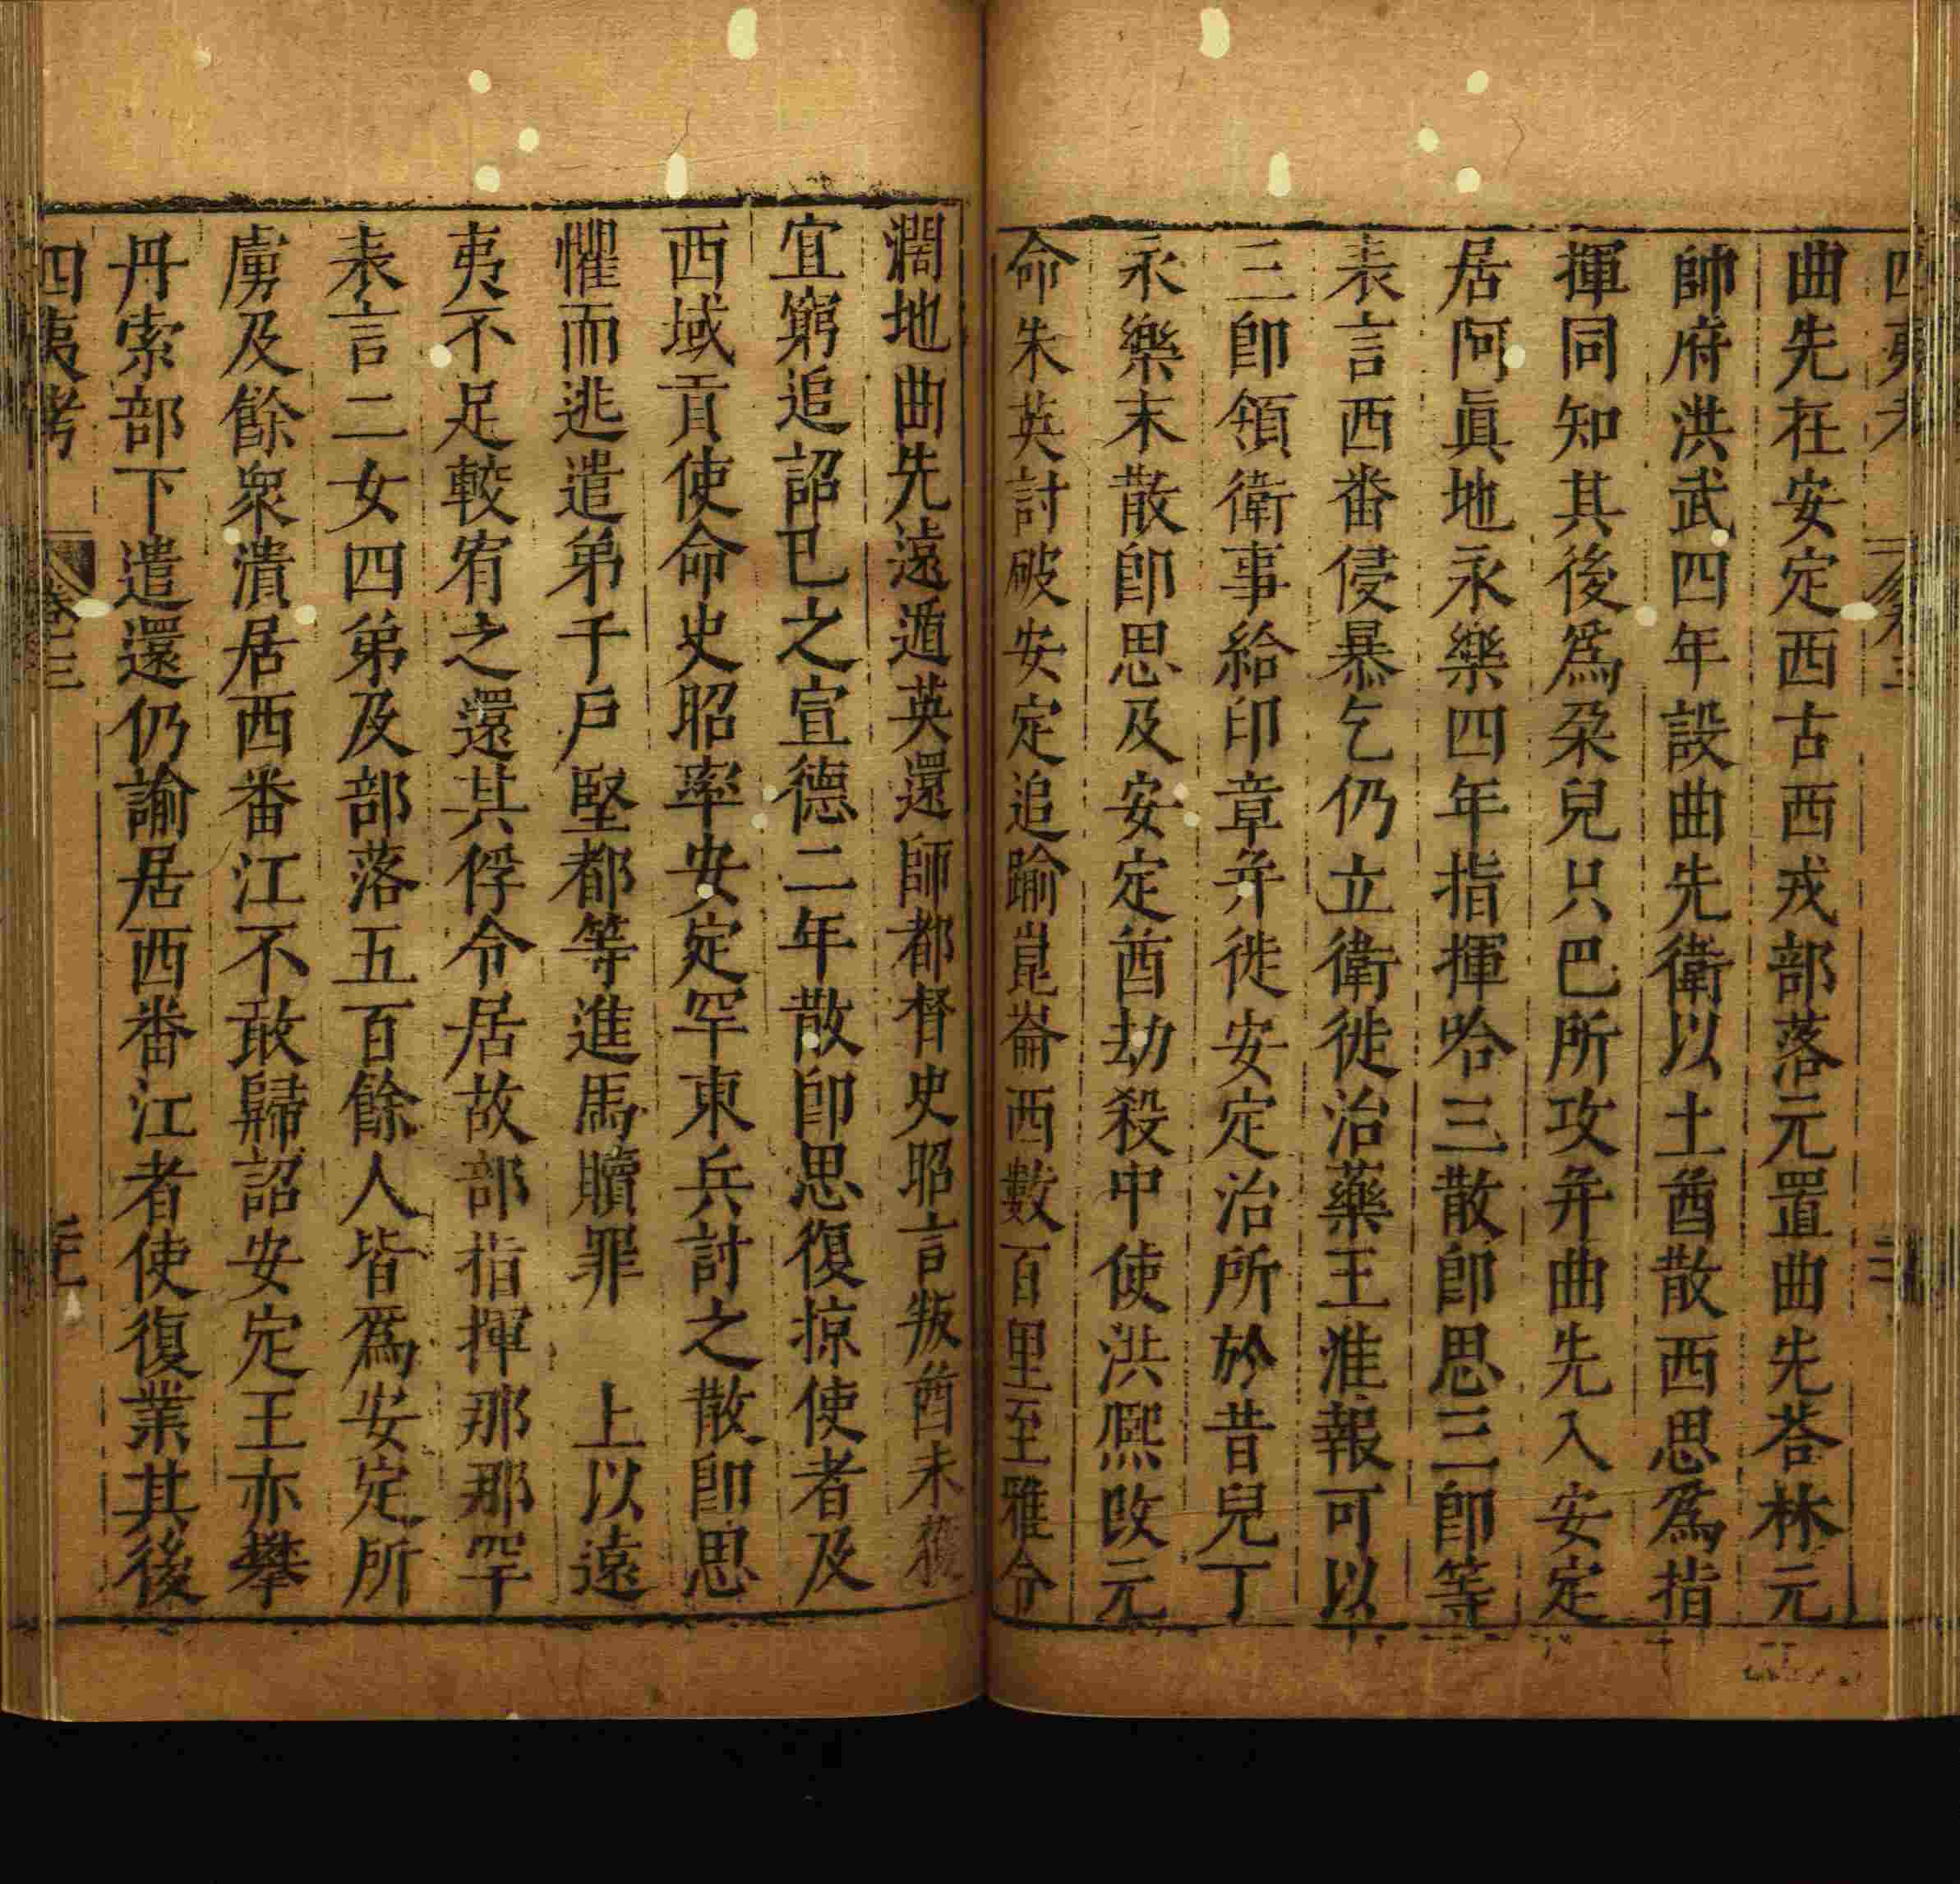 曲先在安定西古西戎部落元置曲先荅林元
帥府洪武四年設曲先衛以土酋散西思爲指
揮同知其後爲朶兒只巴所攻并曲先入安定
居阿眞地永樂四年指揮哈三散卽思三卽等
表言西番侵暴乞仍立衛徙治藥王淮報可以
三卽領衛事給印章并徙安定治所於昔兒丁
永樂末散卽思及安定酋劫殺中使洪熈改元
命朱英討破安定追踰崑崙西數百里至雅令
濶地曲先遠遁英還師都督史昭言叛酋未獲
宜窮追詔已之宣德二年散卽思復掠使者及
西域貢使命史昭率安定罕東兵討之散卽思
懼而逃遣弟千戶堅都等進馬贖罪　上以遠
夷不足較宥之還其俘令居故部指揮那那罕
表言二女四弟及部落五百餘人皆爲安定所
虜及餘衆潰居西番江不敢歸詔安定王亦攀
丹索部下遣還仍諭居西番江者使復業其後
四夷考　卷三